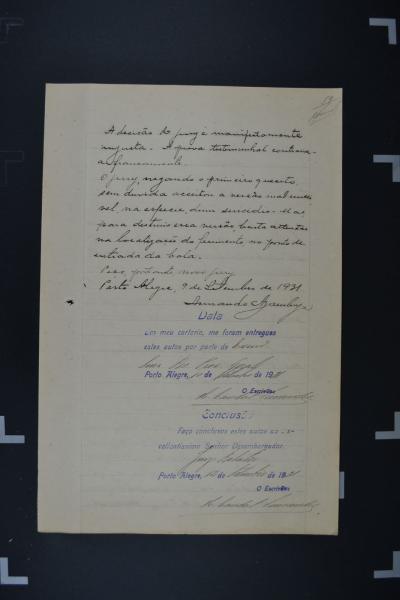 A decisão do jury é manifestamente
injusta. A prova testemunhal contraria-
a francamente.
O jury, negando o primeiro quesito,
sem duvida acceitou a versão mais
vel, na especie, dum suicidio. Mas,
para destruir essa versão, basta attentar
na localização do ferimento no ponto de
entrada da bala.
Peço, portanto novo jury.
Porto Alegre, 9 de Setembro de 1931
Armando Azambuja
Data
Em meu cartorio, me foram entregues
estes autos por parte do
Porto Alegre, 10 de Setembro de 1931
O Escrivão
Conclusão
Faço conclusos estes autos ao ex-
cellentissimo Senhor Desembargador
Porto Alegre, 10 de Setembro de 1931
O Escrivão